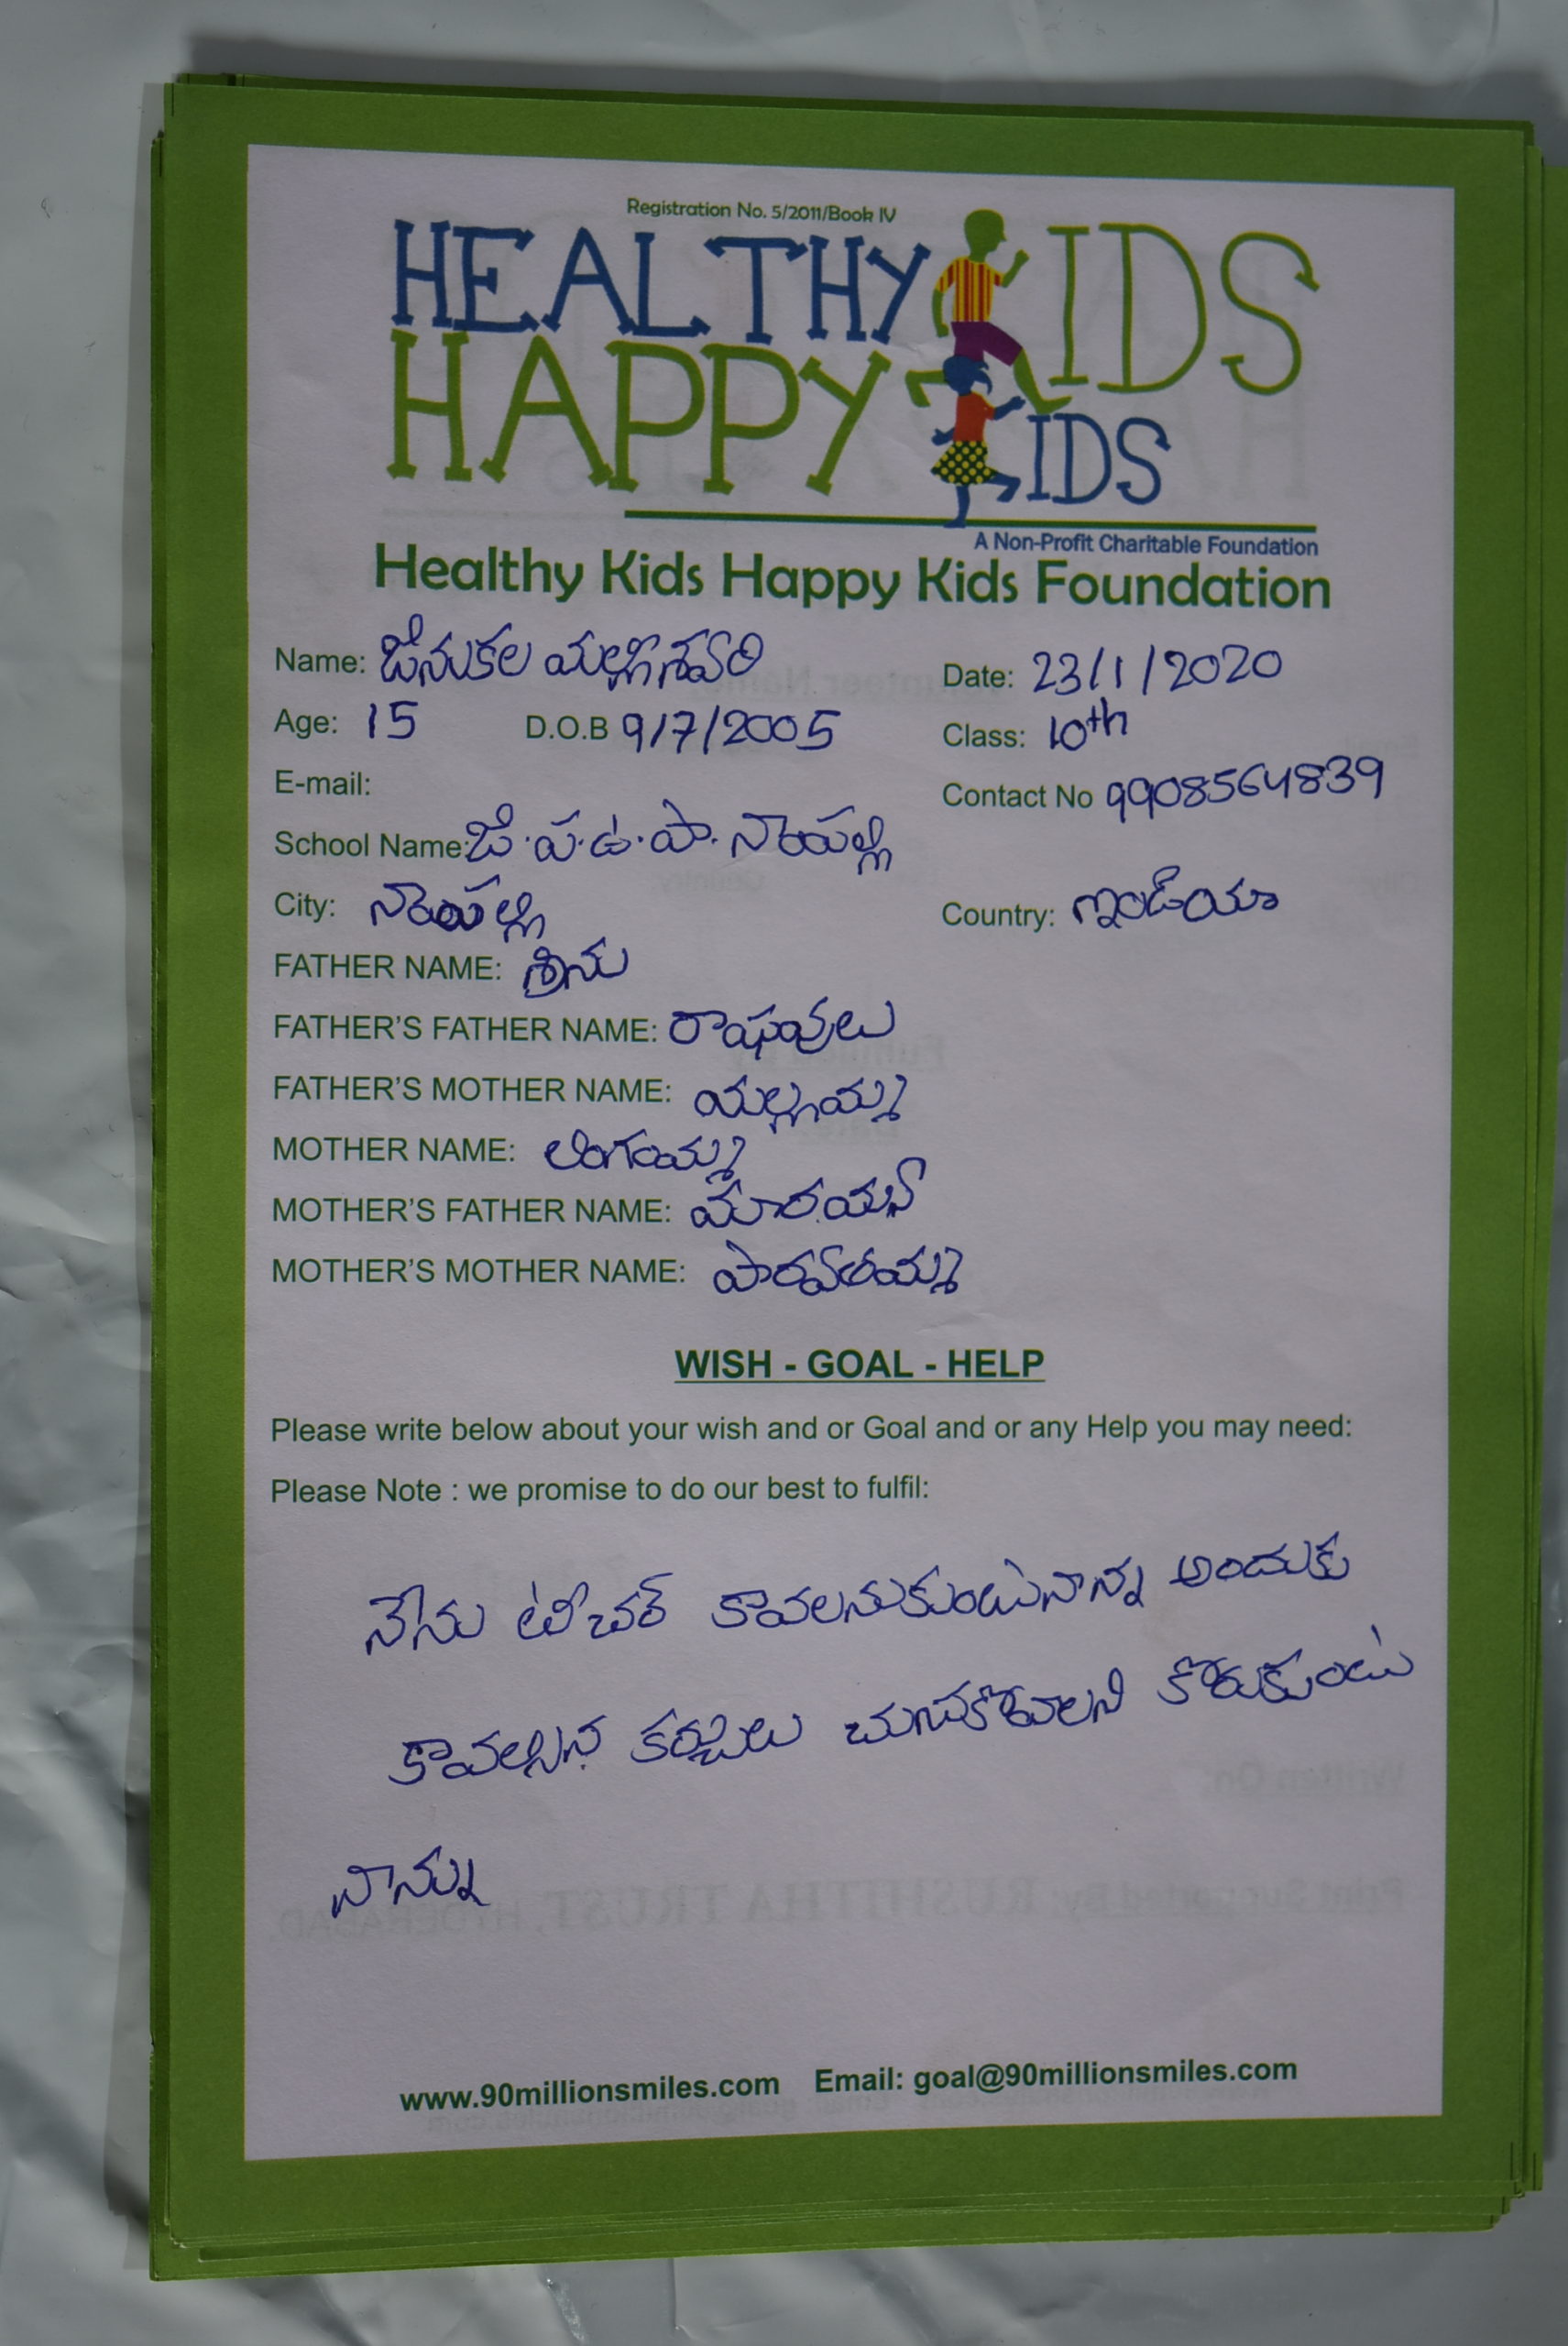 Registration No. 5/2011/Book IV
HEALTHY KIDS
HAPPY KIDS
A Non-Profit Charitable Foundation
Healthy Kids Happy Kids Foundation
Name: జినుకల మల్లీశవరి Date: 23/1/2020
Age: 15 D.O.B 9/7/2005 Class: 10th
E-mail: Contact No 9908564839
School Name: జి.ప.ఉ.పా. నారపల్లి
City: నారపల్లి Country: ఇండియా
FATHER NAME: శ్రీను
FATHER'S FATHER NAME: రాఘవులు
FATHER'S MOTHER NAME: యల్లమ్మ
MOTHER NAME: లింగమ్మ
MOTHER'S FATHER NAME:
MOTHER'S MOTHER NAME:
WISH - GOAL - HELP
Please write below about your wish and or Goal and or any Help you may need:
Please Note : we promise to do our best to fulfil:
నేను టీచర్ కావలనుకుంటునాన్న అందుకు
కావలసిన కర్చులు కోరుకుంటు
నాన్ను
www.90millionsmiles.com Email: goal@90millionsmiles.com